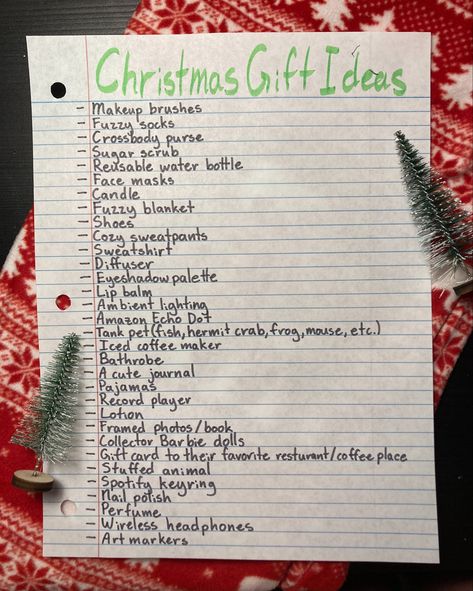 Christmas Gift Ideas
- Makeup brushes
- Fuzzy socks
- Crossbody purse
- Sugar scrub
- Reusable water bottle
- Face masks
- Candle
- Fuzzy blanket
- Shoes
- Cozy sweatpants
- Sweatshirt
- Diffuser
- Eyeshadow palette
- Lip balm
- Ambient lighting
- Amazon Echo Dot
- Tank pet (fish, hermit crab, frog, mouse, etc.)
- Iced coffee maker
- Bathrobe
- A cute journal
- Pajamas
- Record player
- Lotion
- Framed photos/book
- Collector Barbie dolls
- Gift card to their favorite resturant/coffee place
- Stuffed animal
- Spotify keyring
- Nail polish
- Perfume
- Wireless headphones
- Art markers